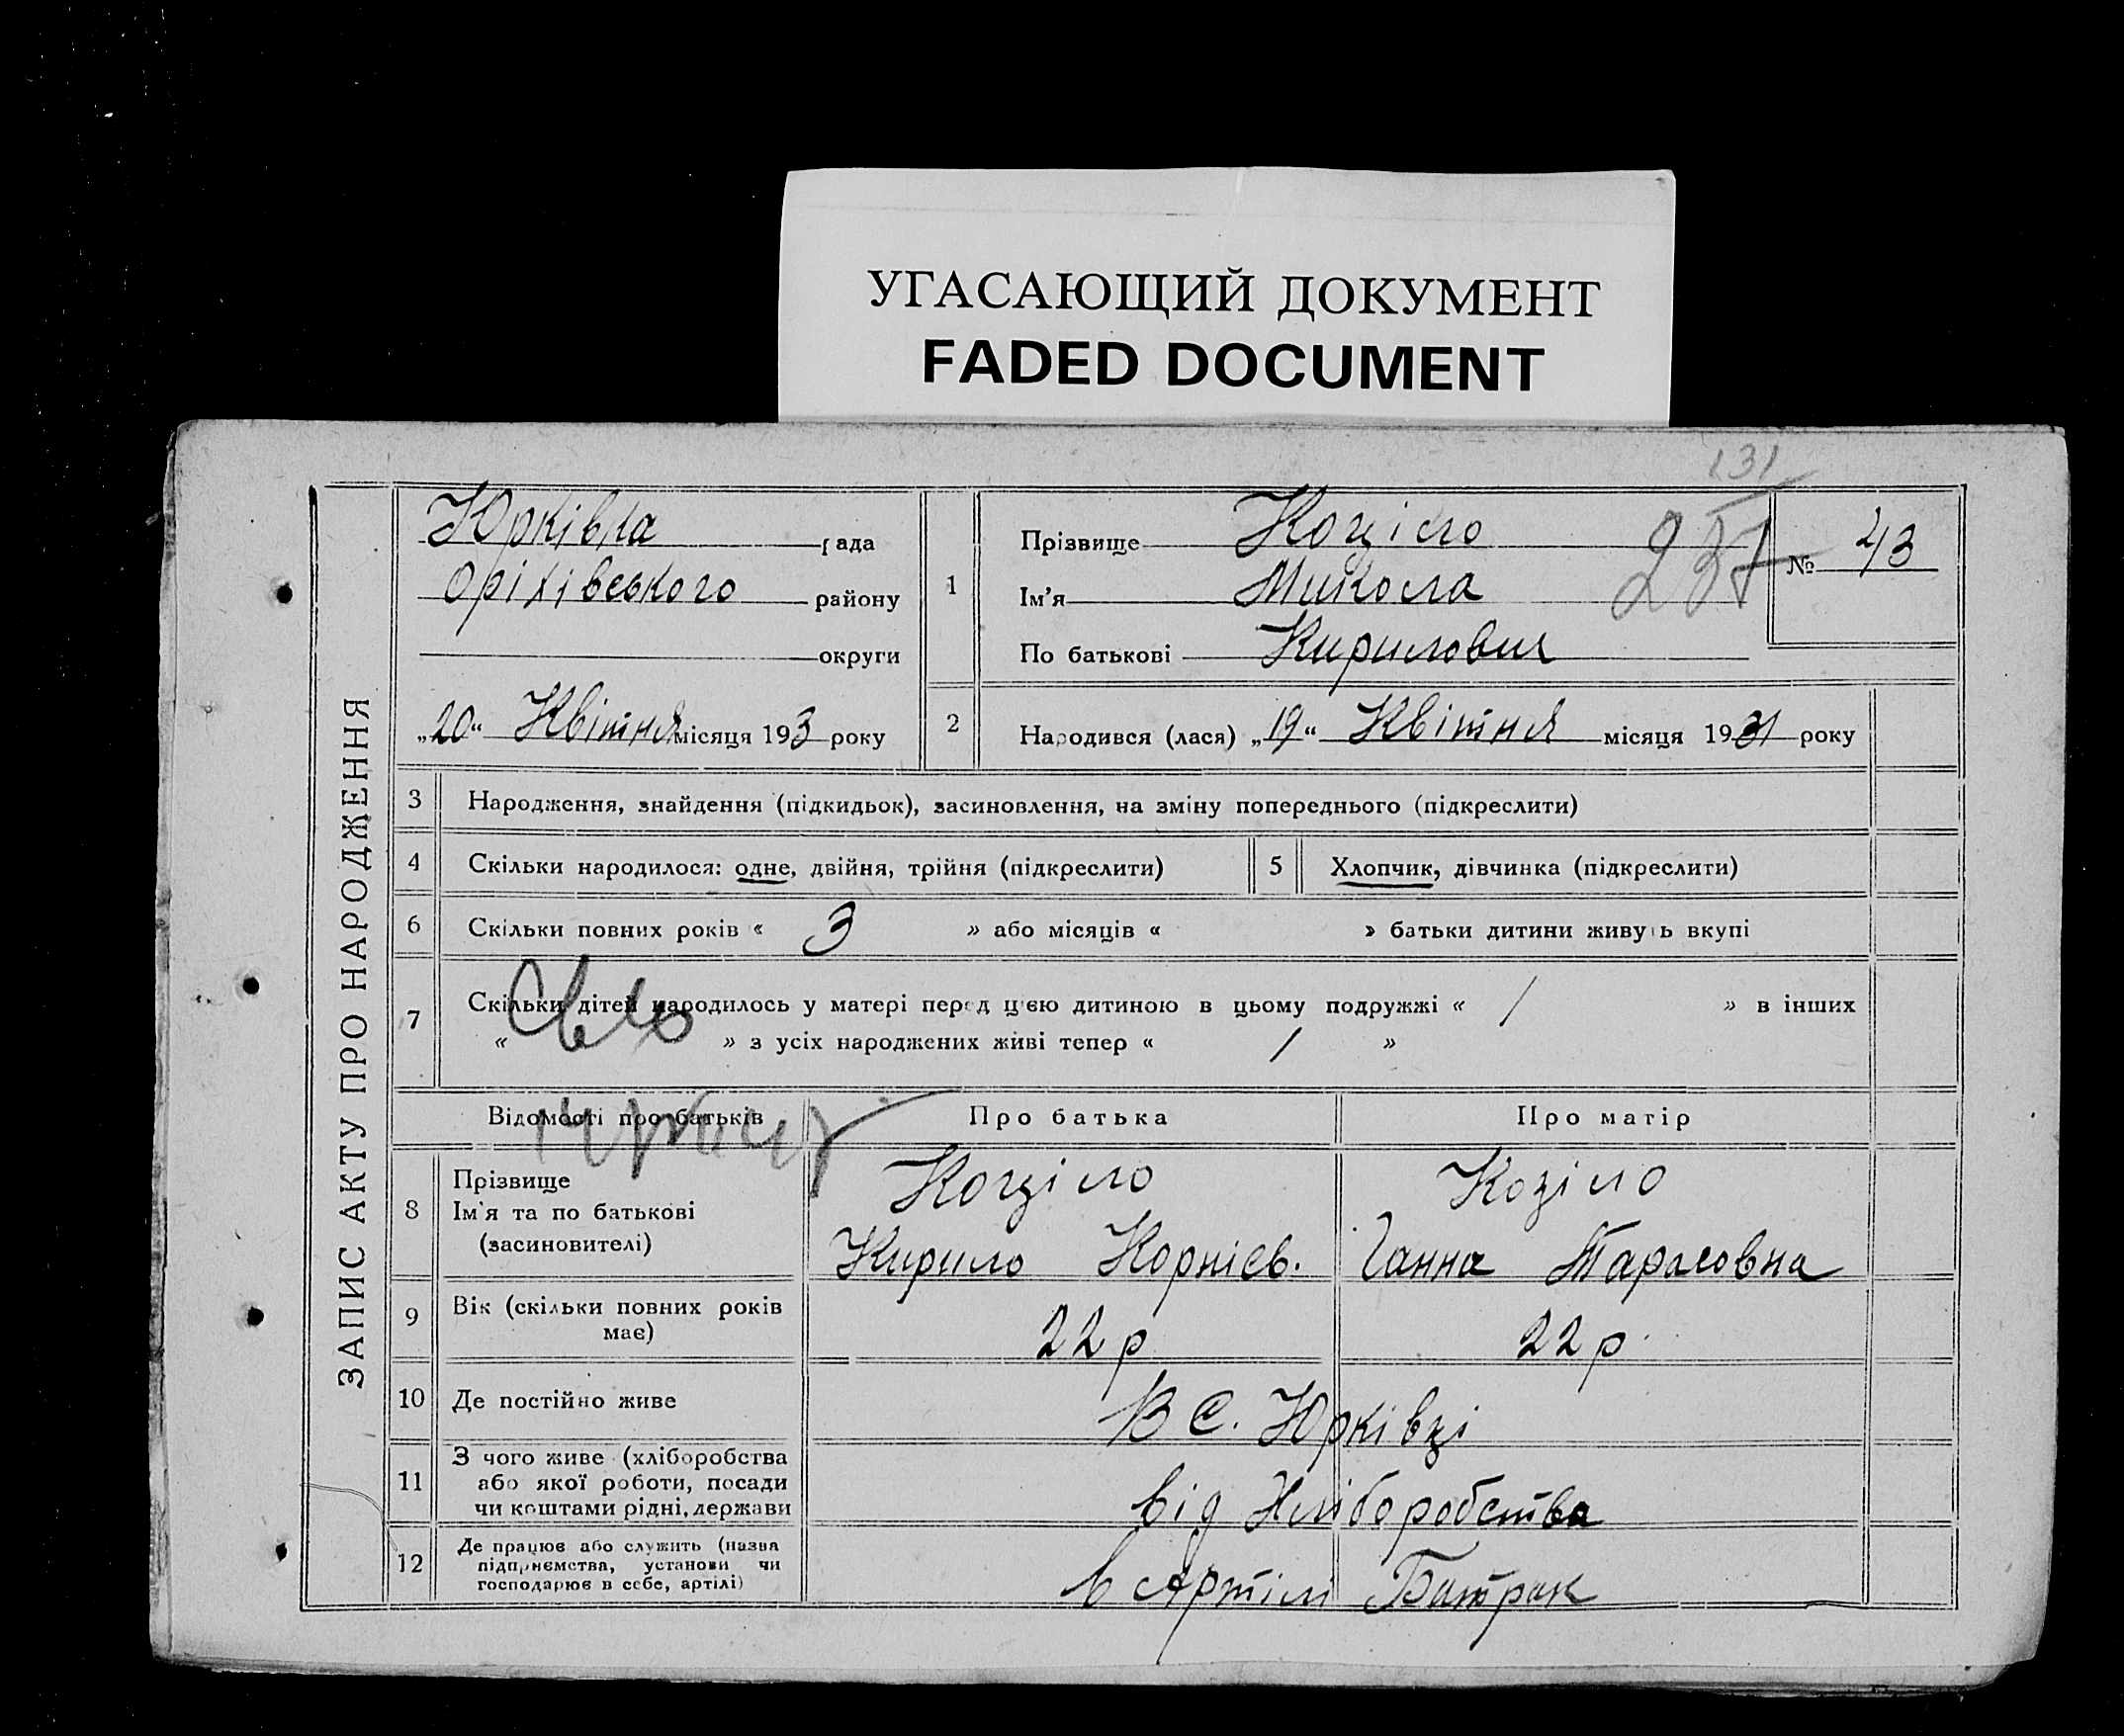 УГАСАЮЩИЙ ДОКУМЕНТ
FADED DOCUMENT
131
237
ЗАПИС АКТУ ПРО НАРОДЖЕННЯ
Юрківка рада
Оріхівського району
округи
„20“ Квітня місяця 193 року
1
Прізвище Коціло
Ім'я Микола
По батькові Кирилович
№ 43
2 Народився (лася) „19“ Квітня місяця 1931 року
3 Народження, знайдення (підкидьок), засиновлення, на зміну попереднього (підкреслити)
4 Скільки народилося: одне, двійня, трійня (підкреслити) 5 Хлопчик, дівчинка (підкреслити)
6 Скільки повних років « 3 » або місяців « » батьки дитини живуть вкупі
7 Скільки дітей народилось у матері перед цією дитиною в цьому подружжі « / » в інших
« » з усіх народжених живі тепер « / »
Відомості про батьків Про батька Про матір
8 Прізвище Ім'я та по батькові (засиновителі)
Коціло Козіло
Кирило Корнієв. Ганна Тарасовна
9 Вік (скільки повних років має) 22 р 22 р.
10 Де постійно живе В С. Юрківці
11 З чого живе (хліборобства або якої роботи, посади чи коштами рідні, держави від Хліборобства
12 Де працює або служить (назва підприємства, установи чи господарює в себе, артілі) в Артілі Батрак